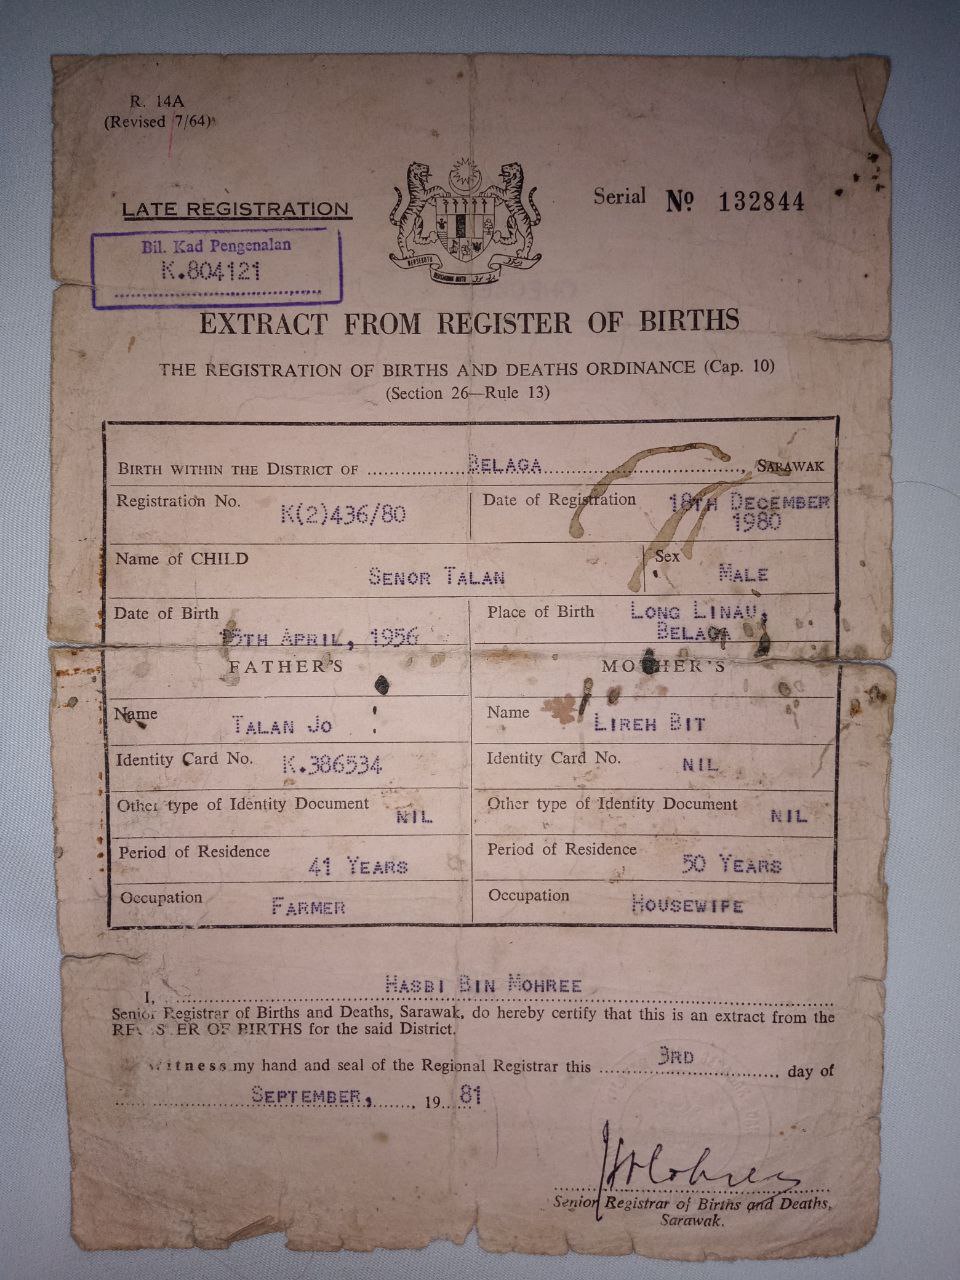 R. 14A
(Revised 7/64)
Serial № 132844
LATE REGISTRATION
Bil. Kad Pengenalan
K.804121
EXTRACT FROM REGISTER OF BIRTHS
THE REGISTRATION OF BIRTHS AND DEATHS ORDINANCE (Cap. 10)
(Section 26—Rule 13)
BIRTH WITHIN THE DISTRICT OF BELAGA, SARAWAK
Registration No. K(2)436/80 Date of Registration 18TH DECEMBER
1980
Name of CHILD SENOR TALAN Sex MALE
Date of Birth APRIL, 1956 Place of Birth LONG LINAU,
BELAGA
FATHER'S MOTHER'S
Name TALAN JO Name LIREH BIT
Identity Card No. K.386534 Identity Card No. NIL
Other type of Identity Document NIL Other type of Identity Document NIL
Period of Residence 41 YEARS Period of Residence 50 YEARS
Occupation FARMER Occupation HOUSEWIFE
I, HASBI BIN MOHREE
Senior Registrar of Births and Deaths, Sarawak, do hereby certify that this is an extract from the
OF BIRTHS for the said District.
my hand and seal of the Regional Registrar this 3RD day of
SEPTEMBER, 1981
Senior Registrar of Births and Deaths,
Sarawak.